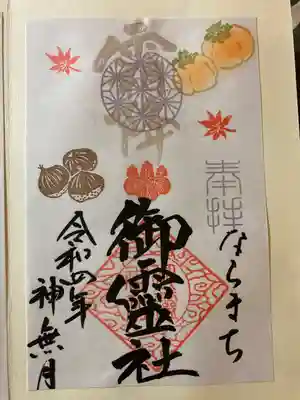 奉拝
ならまち
御靈社
令和四年
神無月